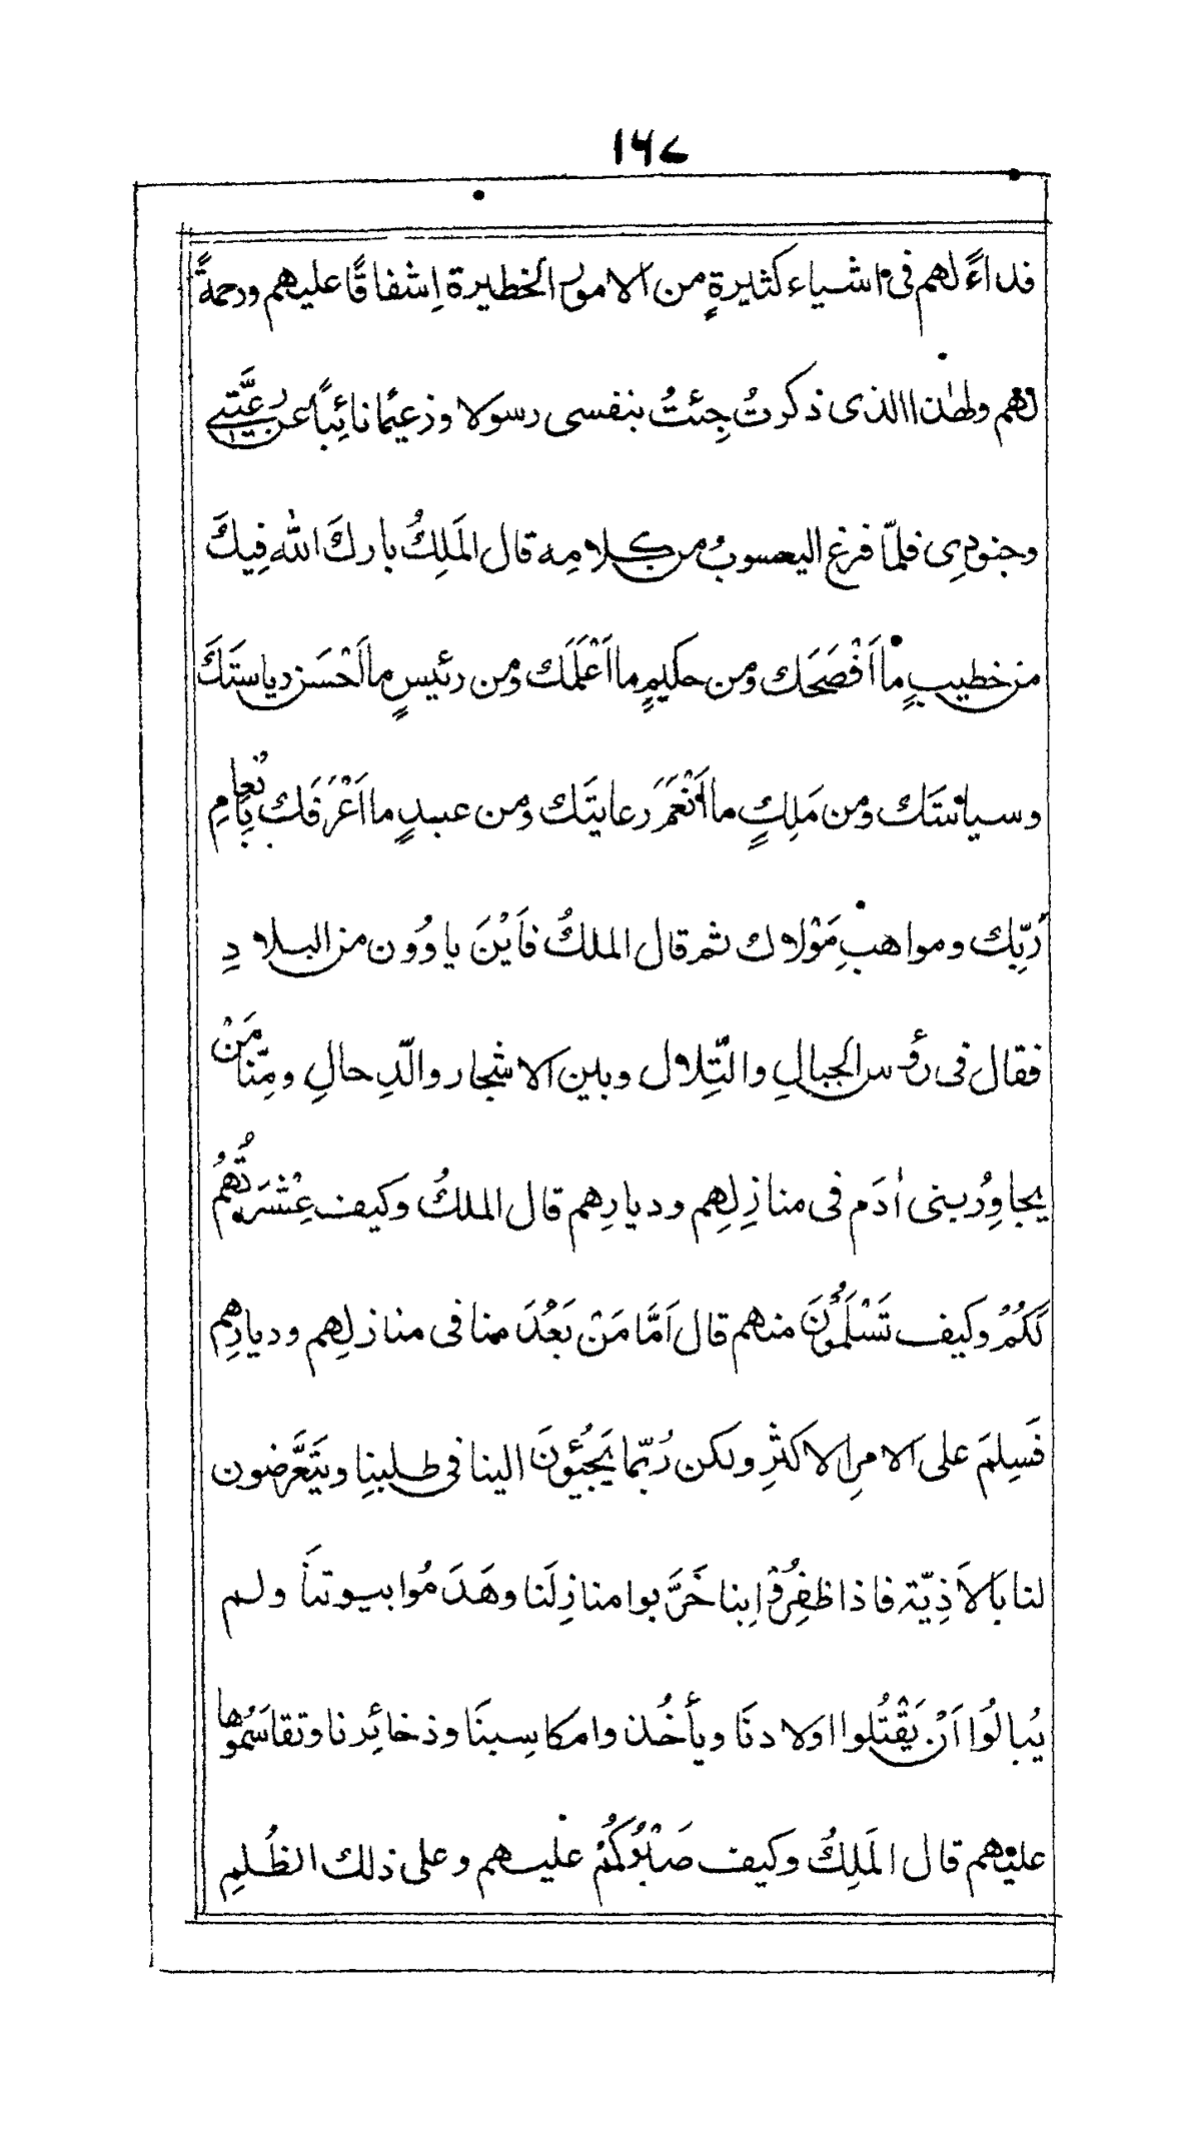 ١٦٧
فداءً لهم فی اشياء كثيرةٍ من الامور الخطيرة اِشفاقًا عليهم ورحمةً
لهم ولهٰذا الذی ذكرتُ جِئتُ بنفسی رسولا وزعيمًا نائِبًا عن رعِيَّتی
وجنودِی فلمّا فرغ اليعسوبُ من كلامِه قال المَلِكُ بارك اللّٰه فِيكَ
من خطيبٍ ما اَفْصَحَك ومن حكيمٍ ما اَعْلَمَك ومن رئيسٍ ما اَحْسَن رياستَكَ
وسياستَك ومن مَلِكٍ ما اَنْعَمَ رعايتَك ومن عبدٍ ما اَعْرَفَك بِاِنعامِ
رَبِّك ومواهبِ مَوْلاك ثم قال الملكُ فاَيْنَ ياوُون من البلادِ
فقال فی رؤس الجبالِ والتِّلال وبين الاشجار والدِّحالِ ومِنّا مَنْ
يجاوِرُ بنی اٰدَم فی منازِلِهِم وديارِهِم قال الملكُ وكيف عِشْرَتُهُمْ
لَكُمْ وكيف تَسْلَمُوْنَ منهم قال اَمَّا مَنْ بَعُدَ منا فی منازلِهِم وديارِهِم
فَسِلمَ علی الامرِ الاكثرِ ولكن رُبّما يَجِيْئُونَ الينا فی طلبِنا ويتَعَرَّضون
لنا بالاَذِيّة فاذا ظفِرُوْا بِنا خَرَّبوا منازِلَنا وهَدَمُوا بيوتنَا ولم
يُبالُوَا اَنْ يَقْتُلوا اولادنَا ويأخُذوا مكاسِبنَا وذخائِرنا وتقاسَمُوْها
عليْهم قال المَلِكُ وكيف صَبْرُكُمْ عليهم وعلی ذلك الظُلمِ